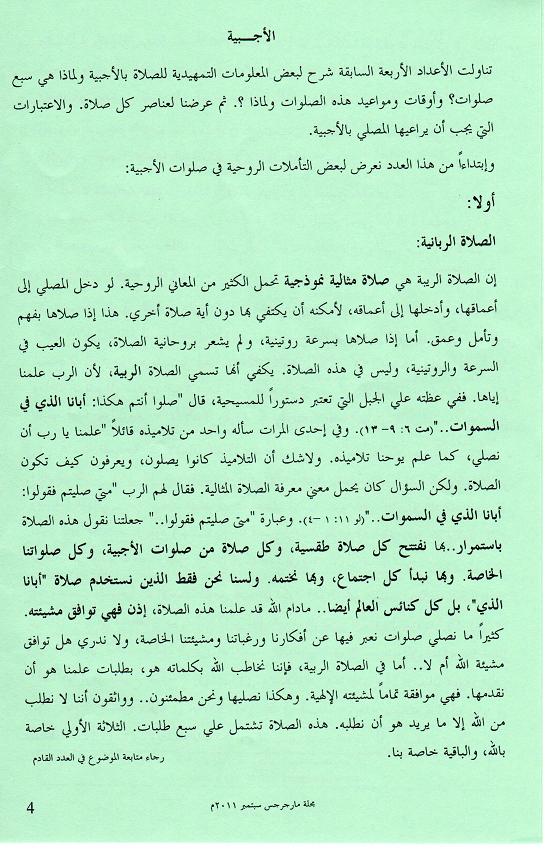 الأجـــبية
تناولت الأعداد الأربعة السابقة شرح لبعض المعلومات التمهيدية للصلاة بالأجبية ولماذا هي سبع
صلوات؟ وأوقات ومواعيد هذه الصلوات ولماذا ؟. ثم عرضنا لعناصر كل صلاة. والاعتبارات
التي يجب أن يراعيها المصلي بالأجبية.
وإبتداءاً من هذا العدد نعرض لبعض التأملات الروحية في صلوات الأجبية:
أولا:
الصلاة الربانية:
إن الصلاة الريبة هي صلاة مثالية نموذجية تحمل الكثير من المعاني الروحية. لو دخل المصلي إلى
أعماقها، وأدخلها إلى أعماقه، لأمكنه أن يكتفي بها دون أية صلاة أخري. هذا إذا صلاها بفهم
وتأمل وعمق. أما إذا صلاها بسرعة روتينية، ولم يشعر بروحانية الصلاة، يكون العيب في
السرعة والروتينية، وليس في هذه الصلاة. يكفي أنها تسمي الصلاة الربية، لأن الرب علمنا
إياها. ففي عظته علي الجبل التي تعتبر دستوراً للمسيحية، قال "صلوا أنتم هكذا: أبانا الذي في
السموات.."(مت ٦: ٩- ١٣). وفي إحدى المرات سأله واحد من تلاميذه قائلاً "علمنا يا رب أن
نصلي، كما علم يوحنا تلاميذه. ولاشك أن التلاميذ كانوا يصلون، ويعرفون كيف تكون
الصلاة. ولكن السؤال كان يحمل معني معرفة الصلاة المثالية. فقال لهم الرب "متي صليتم فقولوا:
أبانا الذي في السموات.."(لو ١١: ١ -٤). وعبارة "متى صليتم فقولوا.." جعلتنا نقول هذه الصلاة
باستمرار..بها نفتتح كل صلاة طقسية، وكل صلاة من صلوات الأجبية، وكل صلواتنا
الخاصة. وبها نبدأ كل اجتماع، وبها نختمه. ولسنا نحن فقط الذين نستخدم صلاة "أبانا
الذي"، بل كل كنائس العالم أيضا.. مادام الله قد علمنا هذه الصلاة، إذن فهي توافق مشيئته.
كثيراً ما نصلي صلوات نعبر فيها عن أفكارنا ورغباتنا ومشيئتنا الخاصة، ولا ندري هل توافق
مشيئة الله أم لا.. أما في الصلاة الربية، فإننا نخاطب الله بكلماته هو، بطلبات علمنا هو أن
نقدمها. فهي موافقة تماماً لمشيئته الإلهية. وهكذا نصليها ونحن مطمئنون.. وواثقون أننا لا نطلب
من الله إلا ما يريد هو أن نطلبه. هذه الصلاة تشتمل علي سبع طلبات. الثلاثة الأولي خاصة
بالله، والباقية خاصة بنا.
رجاء متابعة الموضوع في العدد القادم
مجلة مارجرجس سبتمبر ٢٠١١م
4